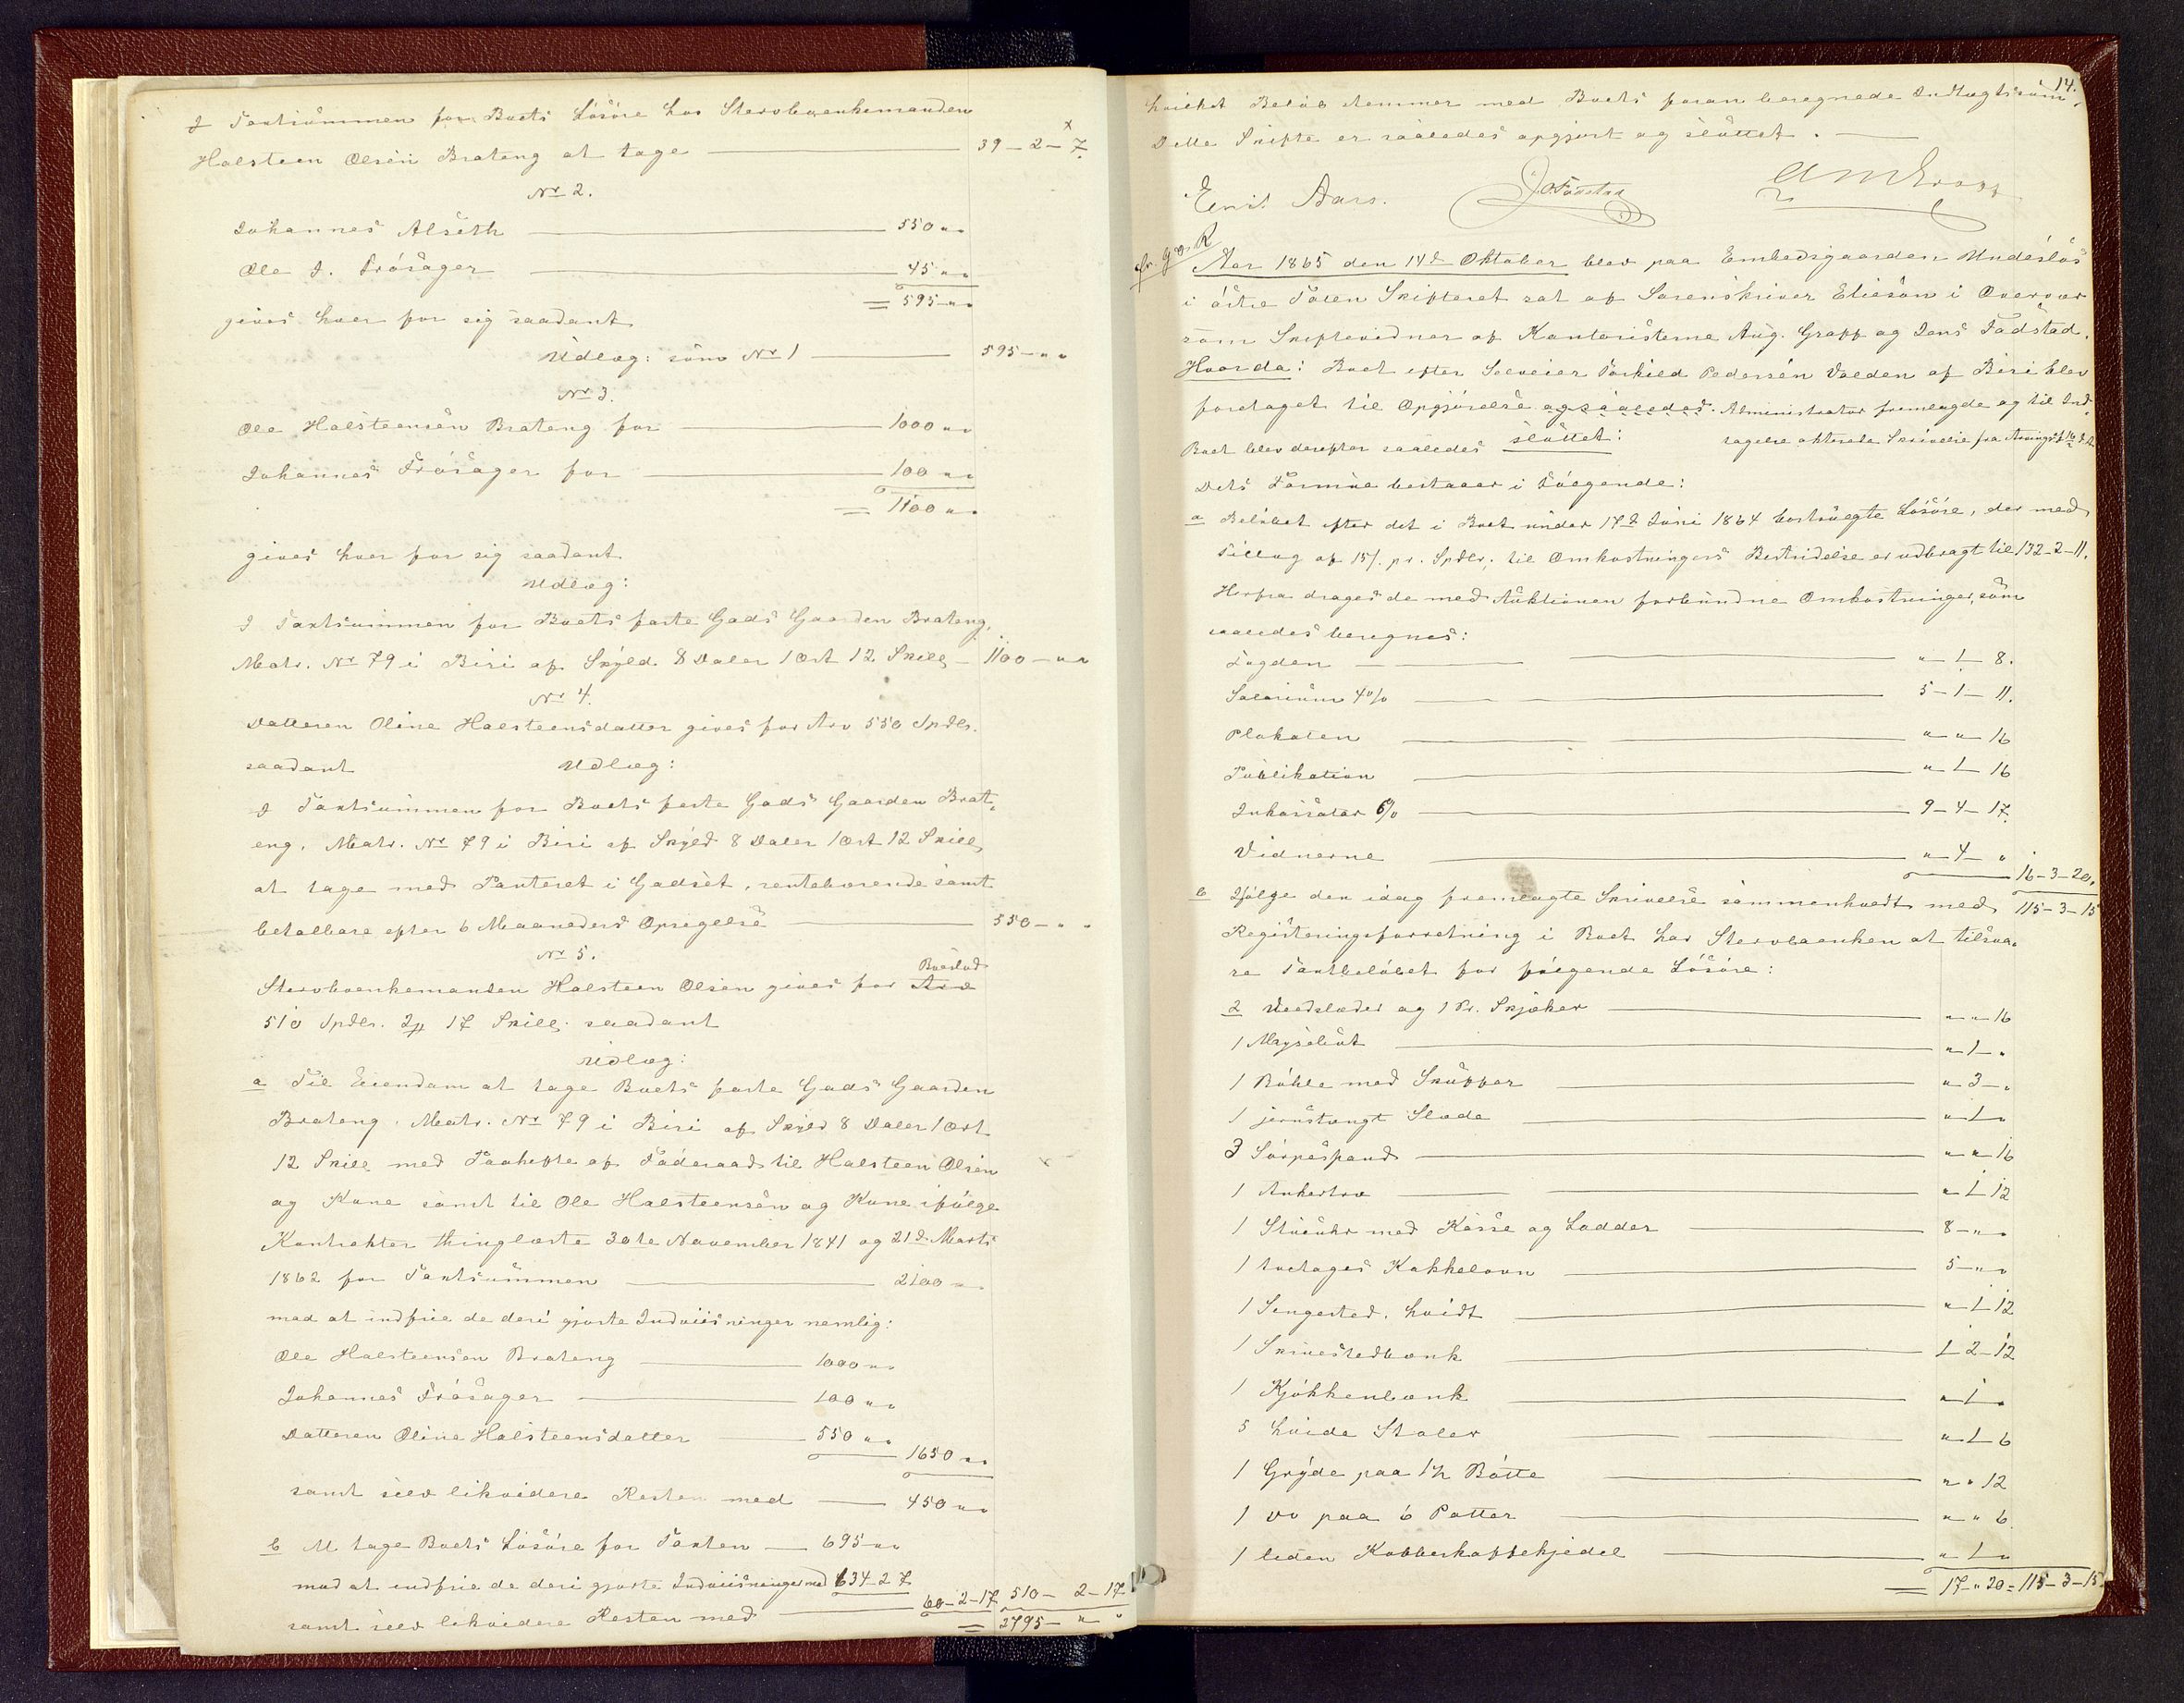 I Taxtsummen for Boets Løsøre hos Stervboenkemanden
Halsteen Olsen Brateng at tage 39-2-7.
Nr 2.
Johannes Alseth 550 " "
Ole J. Frøsager 45 " "
= 595 " "
gives hver for sig saadant
Udlæg: som Nr 1 595 - " "
Nr 3.
Ole Halsteensen Brateng for 1000 " "
Johannes Frøsager for 100 " "
= 1100 " "
gives hver for sig saadant
Udlæg:
I Taxtsummen for Boets faste Gods Gaarden Brateng,
Matr. Nr 79 i Biri af Skyld 8 Daler 1 Ort 12 Skill. - 1100 - " "
Nr 4.
Datteren Oline Halsteensdatter gives for Arv 550 Spdlr.
saadant Udlæg:
I Taxtsummen for Boets faste Gods Gaarden Brat-
eng, Matr. Nr 79 i Biri af Skyld 8 Daler 1 Ort 12 Skill,
at tage med Panteret i Godset, rentebærende samt
betalbare efter 6 Maaneders Opsigelse 550 - " "
Nr 5.
Boeslod
Stervboenkemanden Halsteen Olsen gives for Arv
510 Spdlr. 2 17 Skill. saadant
Udlæg:
a Til Eiendom at tage Boets faste Gods Gaarden
Brateng, Matr. Nr 79 i Biri af Skyld 8 Daler 1 Ort
12 Skill med Paahefte af Føderaad til Halsteen Olsen
og Kone samt til Ole Halsteensen og Kone ifølge
Kontrakter thinglæste 30te November 1841 og 21d Marts
1862 for Taxtsummen 2100 " "
mod at indfrie de deri gjorte Indviisninger nemlig:
Ole Halsteensen Brateng 1000 " "
Johannes Frøsager 100 " "
Datteren Oline Halsteensdatter 550 " "
1650 " "
samt selv likvidere Resten med 450 " "
b At tage Boets Løsøre for Taxten 695 " "
mod at indfrie de deri gjorte Indviisninger med 634-2 7
samt selv likvidere Resten med 60-2-17 510 - 2-17
= 2795 - " "
14.
hvilket Beløb stemmer med Boets foran beregnede Indtægtssum.
Dette Skifte er saaledes opgjort og sluttet.
Emil Aars. J. Fodstad
R
Aar 1865 den 14d Oktober blev paa Embedsgaarden Undesløs
i østre Toten Skifteret sat af Sorenskriver Elieson i Overvær
som Skiftevidner af Kontoristerne Aug. Grapp og Jens Fodstad.
Hvorda: Boet efter Selveier Torkild Pedersen Volden af Biri blev
foretaget til Opgjørelse og saaledes. Administrator fremlagde og til Ind-
Boet blev derefter saaledes sluttet: tagelse
Dets Formue bestaaer i Følgende:
a Beløbet efter det i Boet under 17d Juni 1864 bortsolgte Løsøre, der med
Tillæg af 15/. pr. Spdlr. til Omkostningers Bestridelse er udbragt til 132-2-11.
Herfra drages de med Auktionen forbundne Omkostninger, som
saaledes beregnes:
Fogden " - 1 - 8.
Salarium 4% 5-1-11.
Plakaten " " 16
Publikation " 1 16
Inkassator 6% 9-4-17.
Vidnerne " 4 - "
16-3-20.
b Ifølge den idag fremlagte Skrivelse sammenholdt med 115-3-15
Registreringsforretning i Boet har Stervboenken at tilsva-
re Taxtbeløbet for følgende Løsøre:
2 Vedslæder og 1 Pr. Skjøker " " 16
1 Mysebut " 1 - "
1 Bøkle med Skupper " 3 - "
1 jernstangt Slæde " 1 "
3 Sørpespand " " 16
1 Ankertræ " 1 12
1 Stueuhr med Kasse og Lodder 8 - " "
1 toetages Kakkelovn 5 - " "
1 Sengested, hvidt " 1 12
1 Skrivestedbænk 1-2-12
1 Kjøkkenbænk " 1 "
5 hvide Stoler " 1 6
1 Gryde paa 1½ Bøtte " " 12
1 do paa 6 Potter " " 6
1 liden Kobberkaffekjedel " 1 "
= 17 - " 20 = 115-3-15